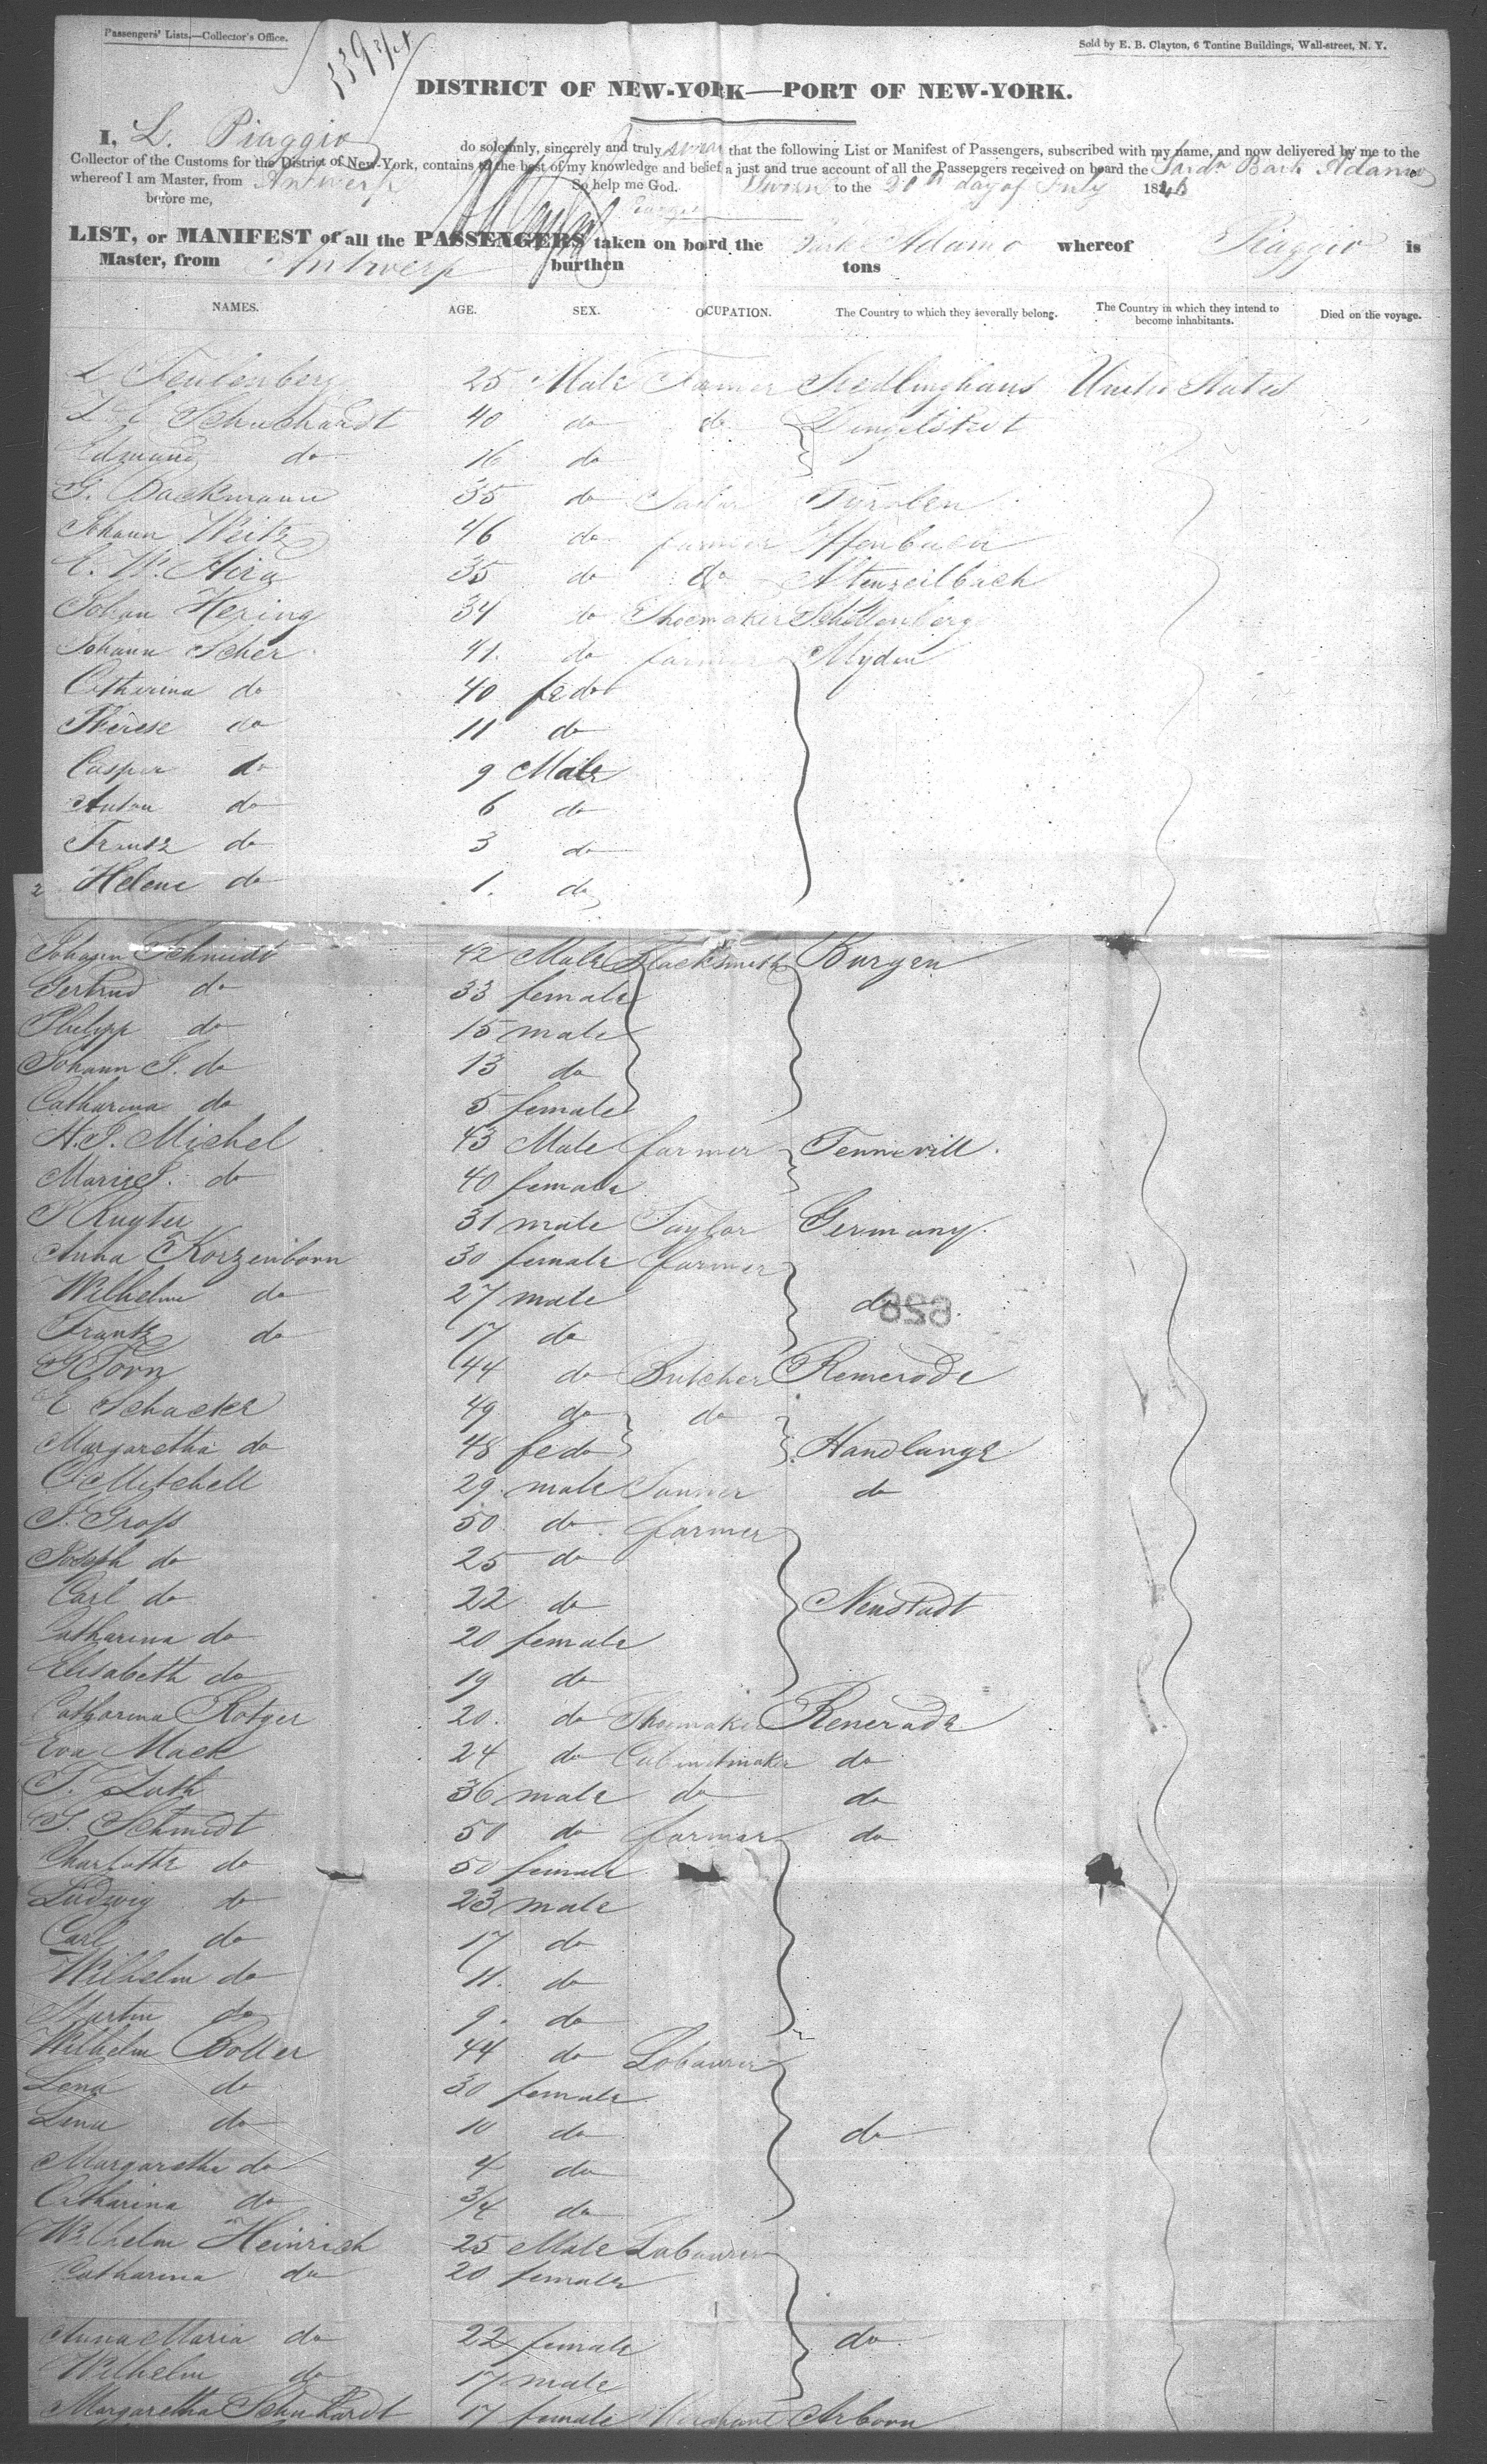 Passengers' Lists,—Collector's Office.
Sold by E. B. Clayton, 6 Tontine Buildings, Wall-street, N. Y.
DISTRICT OF NEW-YORK—PORT OF NEW-YORK.
I, L. Piaggio do solemnly, sincerely and truly swear that the following List or Manifest of Passengers, subscribed with my name, and now delivered by me to the
Collector of the Customs for the District of New-York, contains to the best of my knowledge and belief a just and true account of all the Passengers received on board the Sard. Bark Adamo
whereof I am Master, from Antwerp So help me God. Sworn to the 20th day of July 184
before me, Piaggio
LIST, or MANIFEST of all the PASSENGERS taken on bord the Bark Adamo whereof Piaggio is
Master, from Antwerp burthen tons
NAMES. AGE. SEX. OCUPATION. The Country to which they severally belong. The Country in which they intend to become inhabitants. Died on the voyage.
L 25 Male Farmer Sedlinghaus United States
Schuchardt 40 do do
Edmund do 16 do
G. Backmann 35 do
Johann Weitz 46 do farmer
C. W. 35 do do
Johan Hering 34 do Shoemaker Schellenberg
Johann Scher 41. do farmer Myden
Catharina do 40 fe do
Therese do 11 do
Casper do 9 Male
Anton do 6 do
Frantz do 3 do
2 Helene do 1. do
Johann Schmidt 42 Male Blacksmith Burgen
Gertrud do 33 female
Philipp do 15 male
Johann J. do 13 do
Catharina do 5 female
H. J. Michel 43 Male farmer Tennevill.
Marie J. do 40 female
Ruyter 31 male Taylor Germany.
Anna Korzenborn 30 female farmer
Wilhelm do 27 male do
Frantz do 17 do
Dorn 44 do Butcher Remerode
C Schacke 49 do do
Margaretha do 48 fe do Handlunge
C. Mitchell 29. male Tanner do
J. Gross 50. do. farmer
Joseph do 25 do
Carl do 22 do Neustadt
Catharina do 20 female
Elisabeth do 19 do
Catharina Rotger 20. do Shoemaker Renerode
Eva Mack 24 do Cabinetmaker do
T. Loth 36 male do do
J. Schmidt 50 do farmer do
Charlotte do 50 female
Ludwig do 23 male
Carl do 17 do
Wilhelm do 11. do
Martin do 9. do
Wilhelm Boller 44 do Labourer
Lena do 30 female
Lena do 10 do do
Margaretha do 4 do
Catharina do 3/4 do
Wilhelm Heinrich 25 Male Labourer
Catharina do 20 female
Anna Maria do 22 female do.
Wilhelm do 17 male
Margaretha Schuhardt 17 female Merchant Arborn